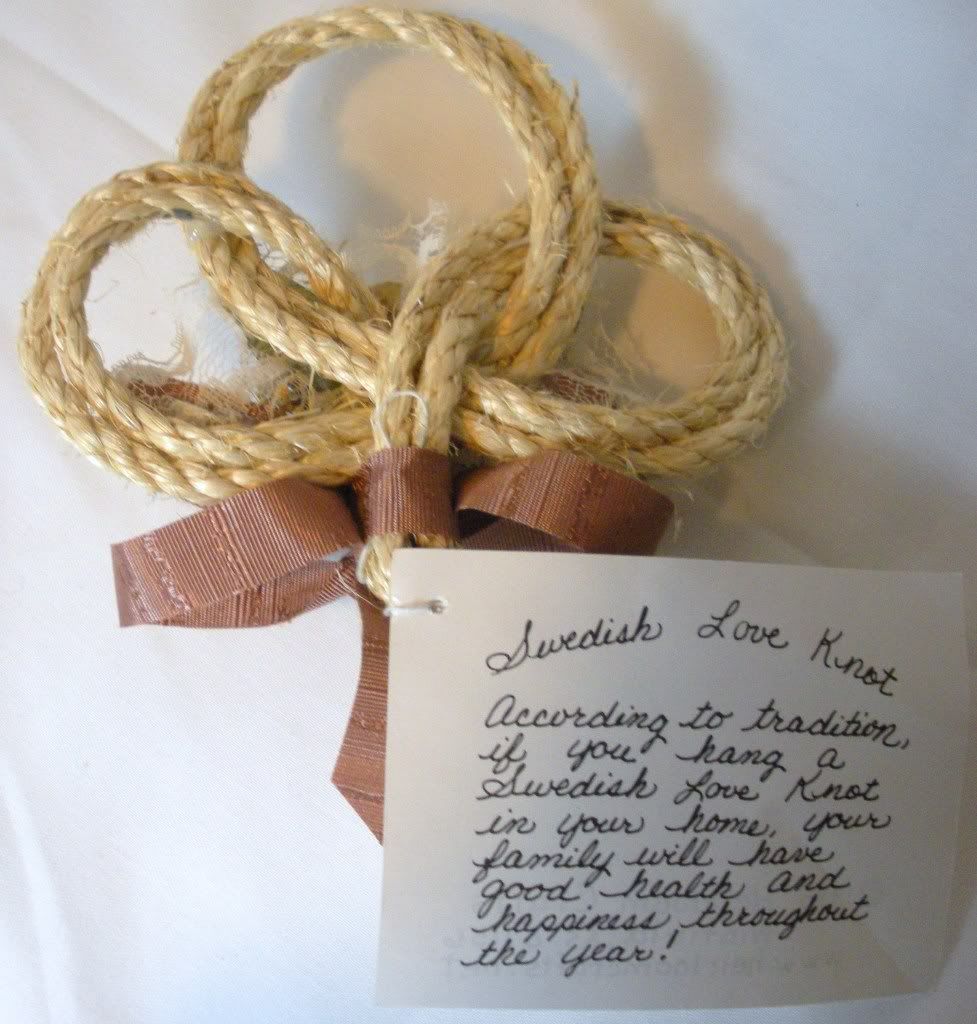 Swedish Love Knot
According to tradition,
if you hang a
Swedish Love Knot
in your home, your
family will have
good health and
happiness throughout
the year!